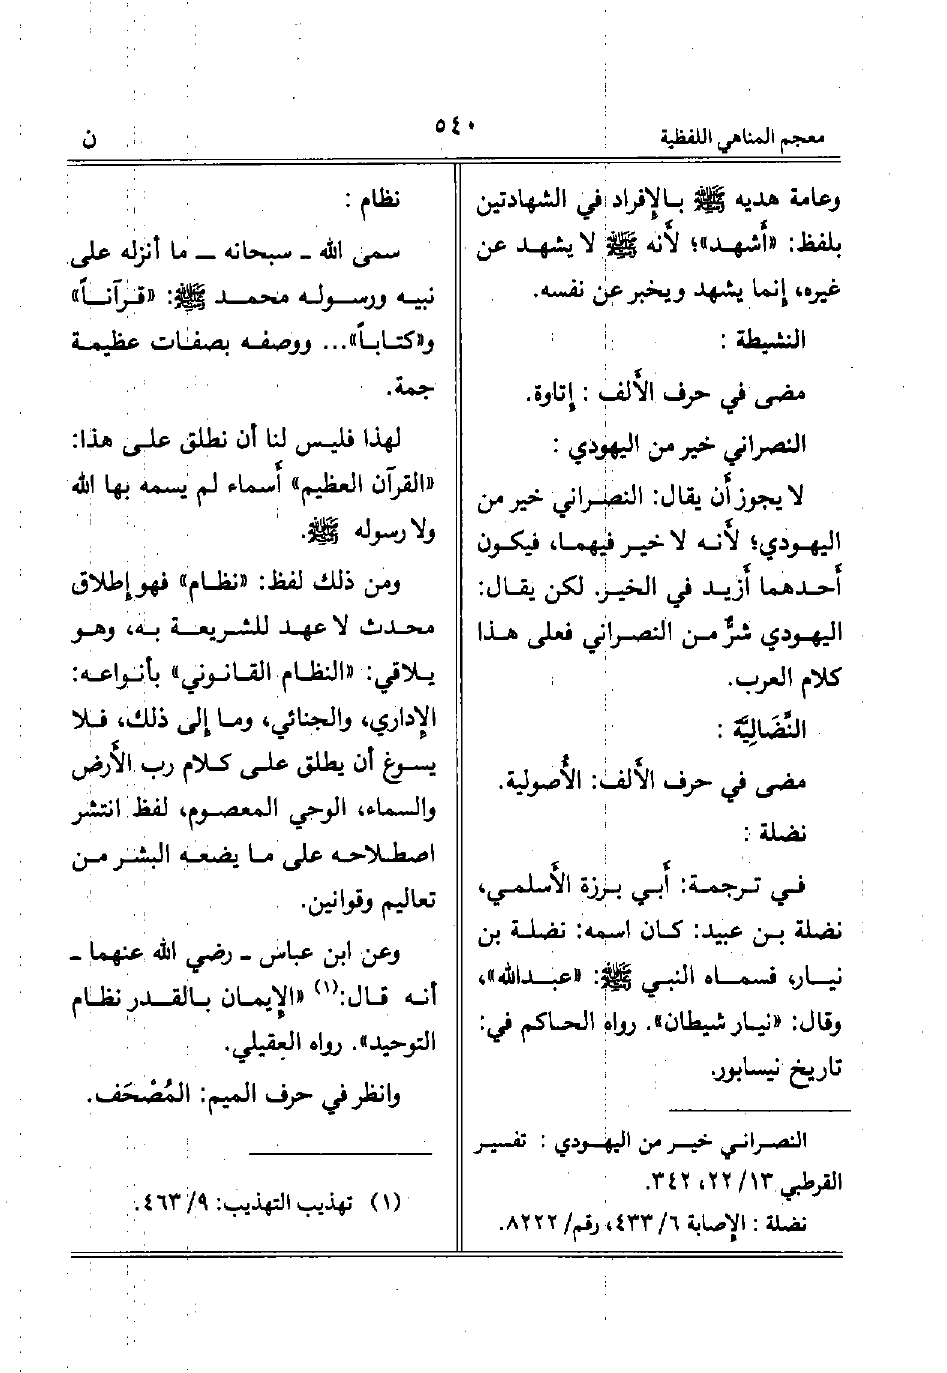 معجم المناهي اللفظية
٥٤٠
ن
وعامة هديه ﷺ بالإفراد في الشهادتين
بلفظ: «أشهد»؛ لأنه ﷺ لا يشهد عن
غيره، إنما يشهد ويخبر عن نفسه.
النشيطة :
مضى في حرف الألف : إتاوة.
النصراني خير من اليهودي :
لا يجوز أن يقال: النصراني خير من
اليهودي؛ لأنه لا خير فيهما، فيكون
أحدهما أزيد في الخير. لكن يقال:
اليهودي شرٌّ من النصراني فعلى هذا
كلام العرب.
النِّضَالِيَّة :
مضى في حرف الألف: الأصولية.
نضلة :
في ترجمة: أبي برزة الأسلمي،
نضلة بن عبيد: كان اسمه: نضلة بن
نيار، فسماه النبي ﷺ: «عبدالله»،
وقال: «نيار شيطان». رواه الحاكم في:
تاريخ نيسابور.
النصراني خير من اليهودي : تفسير
القرطبي ١٣/ ٢٢، ٣٤٢.
نضلة : الإصابة ٦/ ٤٣٣، رقم/ ٨٢٢٢.
نظام :
سمى الله ـ سبحانه ـ ما أنزله على
نبيه ورسوله محمد ﷺ: «قرآناً»
و«كتاباً»... ووصفه بصفات عظيمة
جمة.
لهذا فليس لنا أن نطلق على هذا:
«القرآن العظيم» أسماء لم يسمه بها الله
ولا رسوله ﷺ.
ومن ذلك لفظ: «نظام» فهو إطلاق
محدث لا عهد للشريعة به، وهو
يلاقي: «النظام القانوني» بأنواعه:
الإداري، والجنائي، وما إلى ذلك، فلا
يسوغ أن يطلق على كلام رب الأرض
والسماء، الوحي المعصوم، لفظ انتشر
اصطلاحه على ما يضعه البشر من
تعاليم وقوانين.
وعن ابن عباس ـ رضي الله عنهما ـ
أنه قال:(١) «الإيمان بالقدر نظام
التوحيد». رواه العقيلي.
وانظر في حرف الميم: المُصْحَف.
(١) تهذيب التهذيب: ٩/ ٤٦٣.